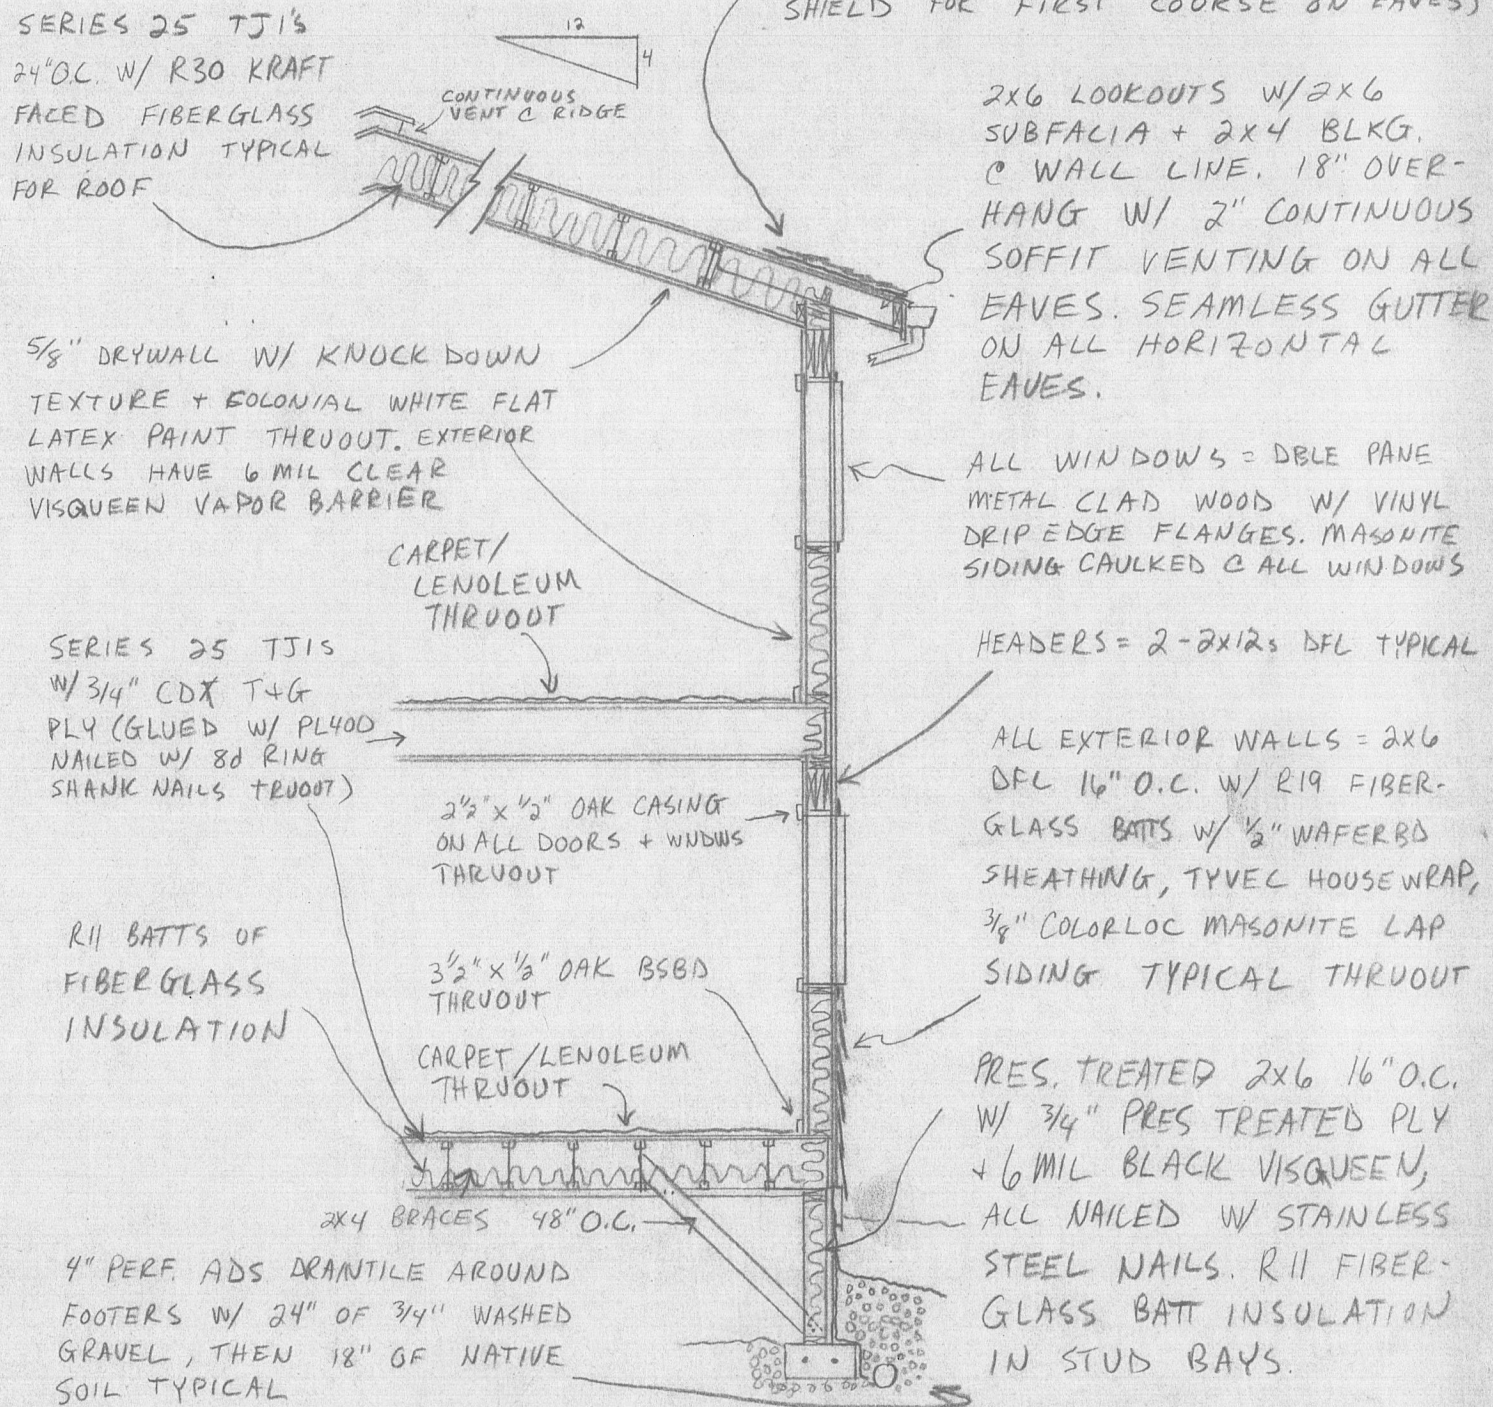 SERIES 25 TJI's
24" O.C. W/ R30 KRAFT
FACED FIBERGLASS
INSULATION TYPICAL
FOR ROOF
12
4
CONTINUOUS
VENT @ RIDGE
SHIELD FOR FIRST COURSE ON EAVES)
2X6 LOOKOUTS W/2X6
SUBFACIA + 2X4 BLKG.
@ WALL LINE. 18" OVER-
HANG W/ 2" CONTINUOUS
SOFFIT VENTING ON ALL
EAVES. SEAMLESS GUTTER
ON ALL HORIZONTAL
EAVES.
5/8" DRYWALL W/ KNOCK DOWN
TEXTURE + COLONIAL WHITE FLAT
LATEX PAINT THRUOUT. EXTERIOR
WALLS HAVE 6 MIL CLEAR
VISQUEEN VAPOR BARRIER
ALL WINDOWS = DBLE PANE
METAL CLAD WOOD W/ VINYL
DRIP EDGE FLANGES. MASONITE
SIDING CAULKED @ ALL WINDOWS
CARPET/
LENOLEUM
THRUOUT
SERIES 25 TJIS
W/ 3/4" CDX T+G
PLY (GLUED W/ PL400
NAILED W/ 8d RING
SHANK NAILS TRUOUT)
HEADERS = 2-2X12s DFL TYPICAL
2 1/2" X 1/2" OAK CASING
ON ALL DOORS + WNDWS
THRUOUT
ALL EXTERIOR WALLS = 2X6
DFL 16" O.C. W/ R19 FIBER-
GLASS BATTS W/ 1/2" WAFERBD
SHEATHING, TYVEC HOUSEWRAP,
3/8" COLORLOC MASONITE LAP
SIDING TYPICAL THRUOUT
R11 BATTS OF
FIBERGLASS
INSULATION
3 1/2" X 1/2" OAK BSBD
THRUOUT
CARPET/LENOLEUM
THRUOUT
PRES. TREATED 2X6 16" O.C.
W/ 3/4" PRES TREATED PLY
+ 6 MIL BLACK VISQUEEN,
ALL NAILED W/ STAINLESS
STEEL NAILS. R11 FIBER-
GLASS BATT INSULATION
IN STUD BAYS.
2X4 BRACES 48" O.C.
4" PERF. ADS DRAINTILE AROUND
FOOTERS W/ 24" OF 3/4" WASHED
GRAVEL, THEN 18" OF NATIVE
SOIL TYPICAL